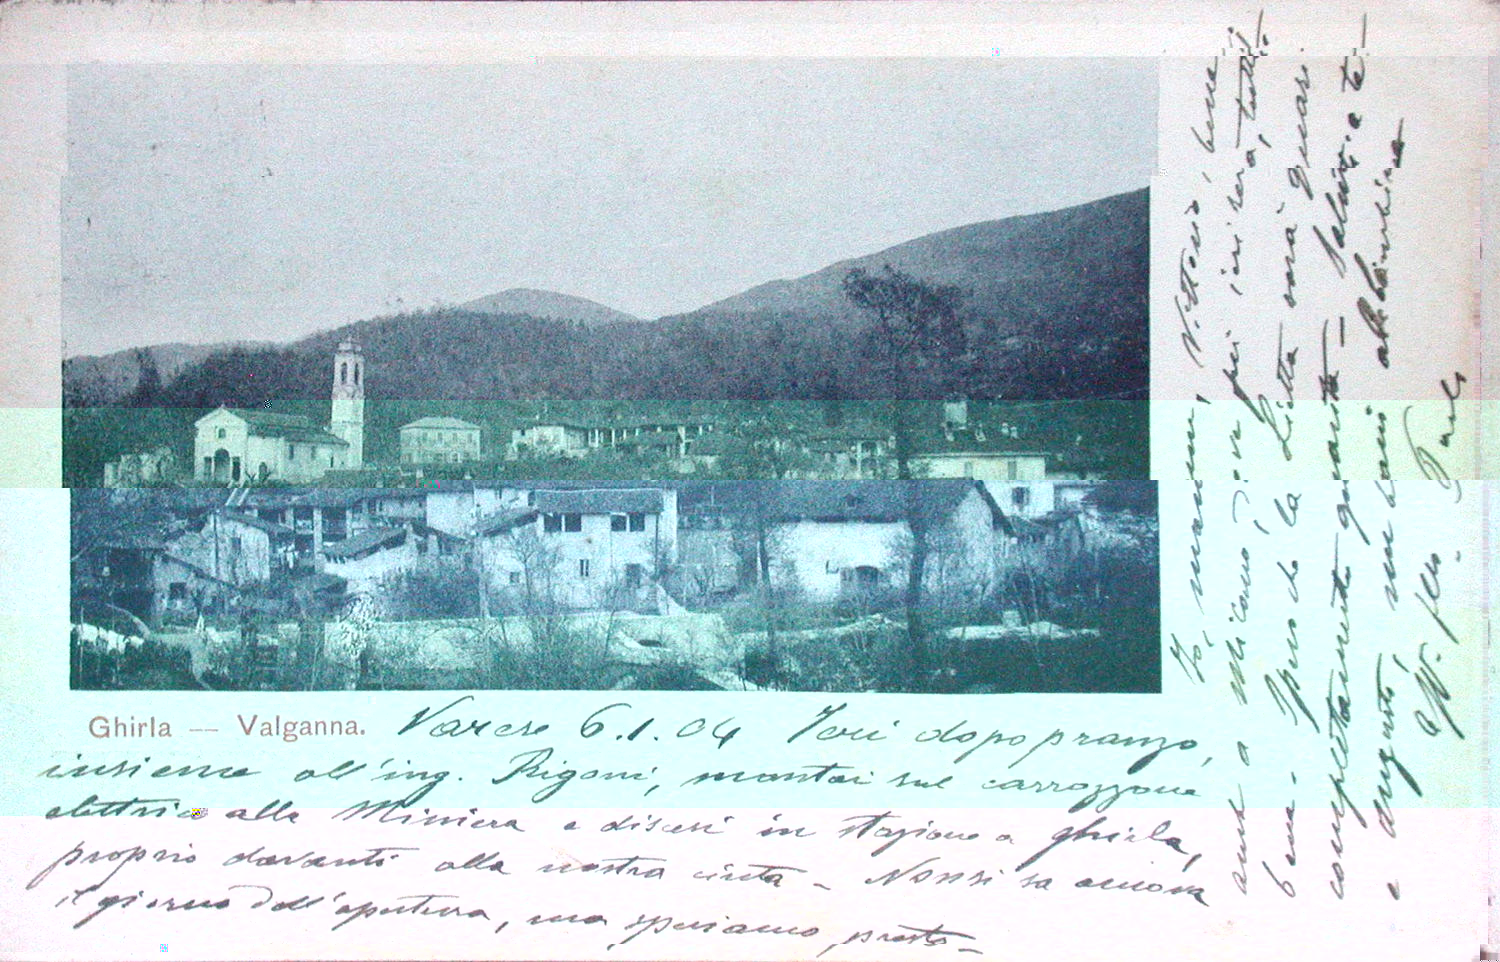 Ghirla — Valganna.
Varese 6.1.04 Ieri dopo pranzo,
insieme all'ing. Rigoni, montai sul carrozzone
elettrico alla Miniera e discesi in stazione a Ghirla,
proprio davanti alla nostra cinta – Non si sa ancora
il giorno dell'apertura, ma speriamo presto –
Io, mamma, Vittorio, bene
anche a Milano, fui ieri sera, tutti
bene. Spero che la Litta sarà quasi
completamente guarita – Saluti a te
e auguri, un bacio alla bambina
aff. fllo Paolo